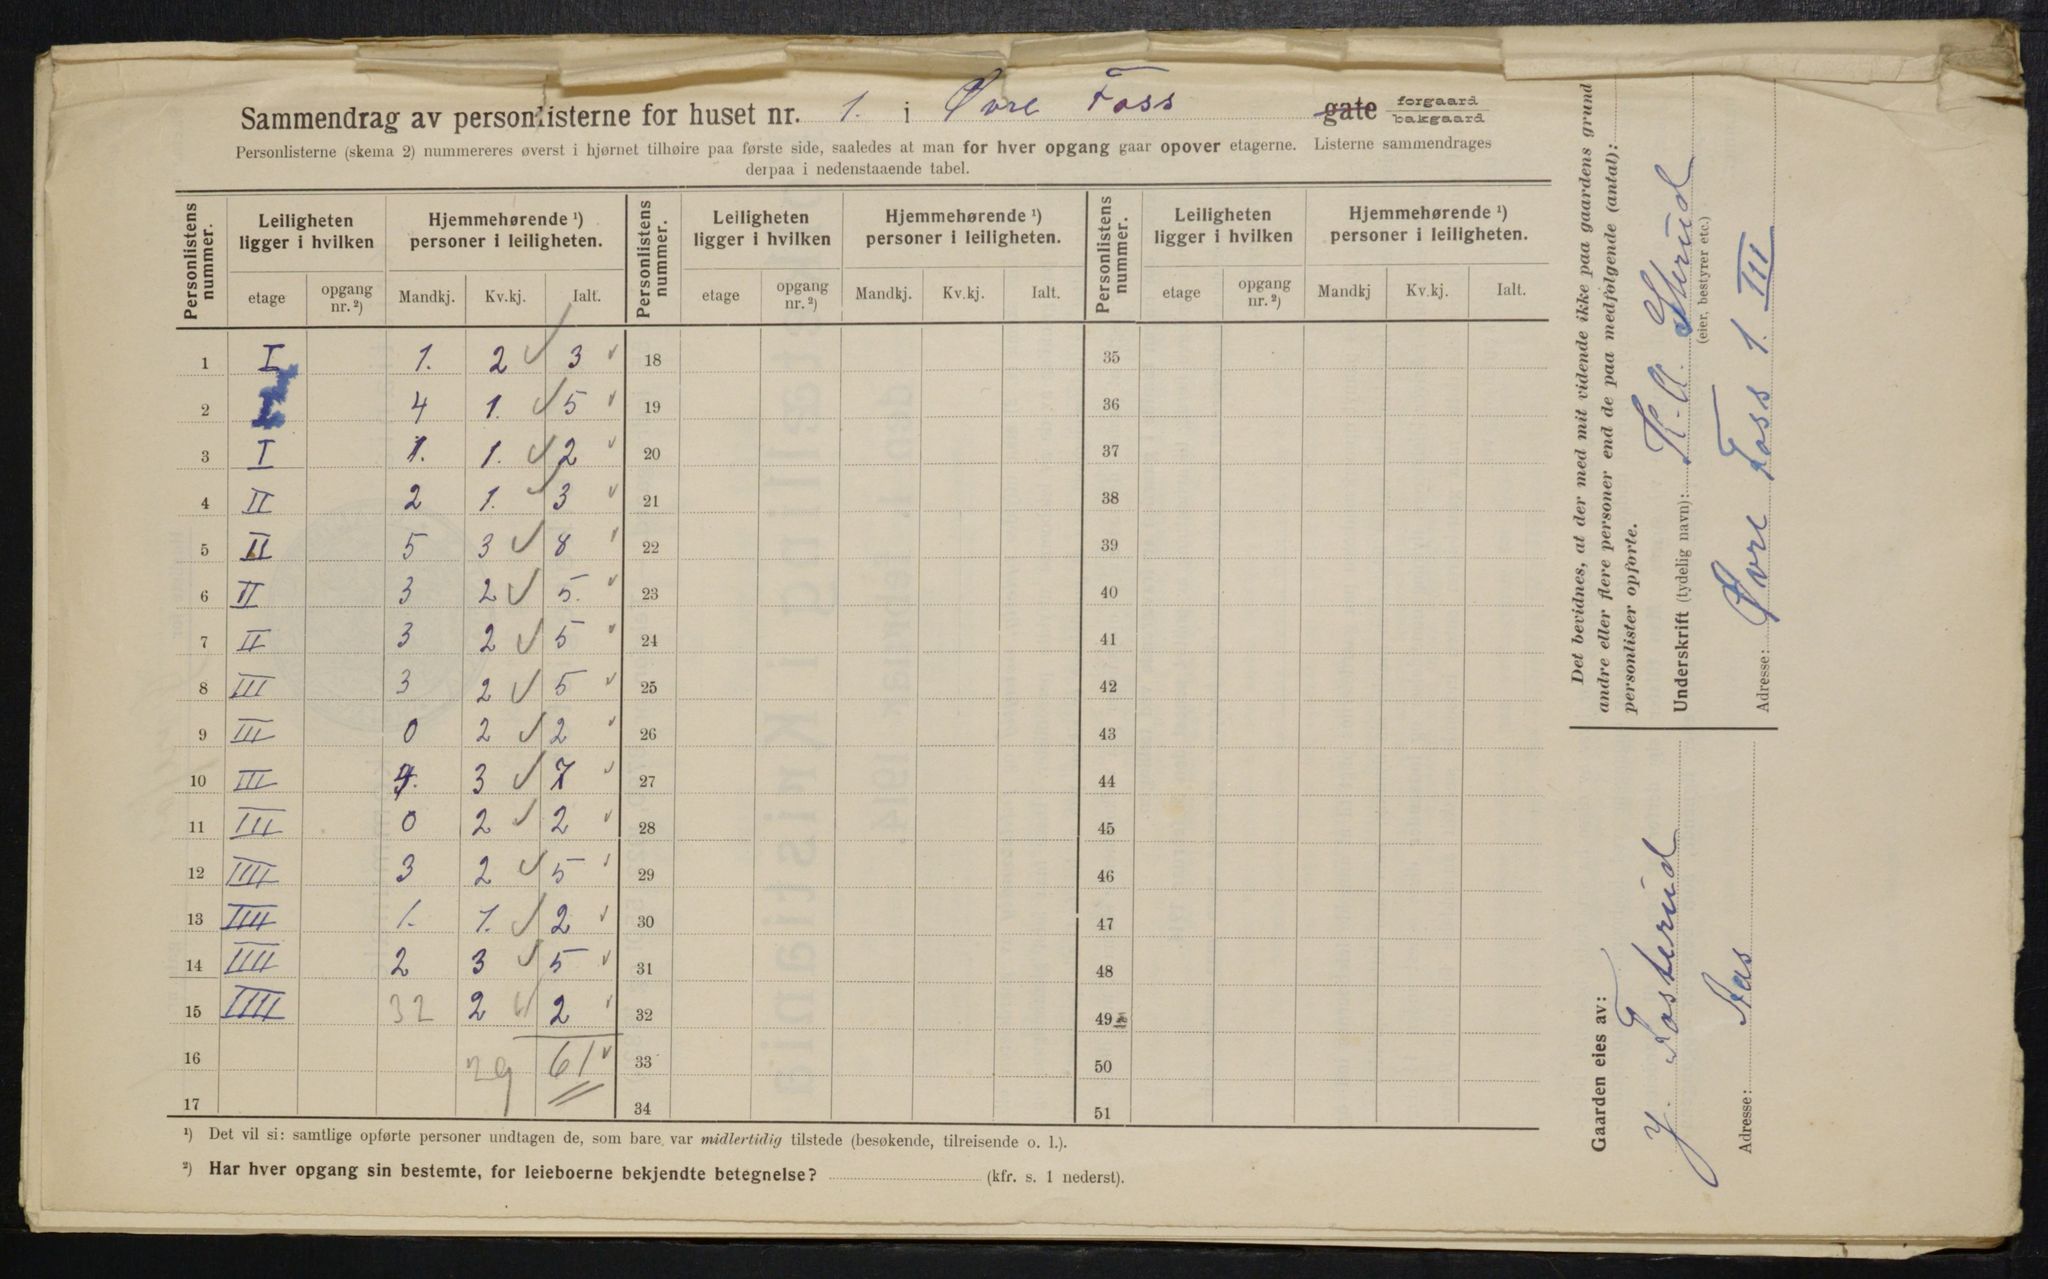 Sammendrag av personlisterne for huset nr. 1. i Øvre Foss gate forgaard bakgaard
Personlisterne (skema 2) nummereres øverst i hjørnet tilhøire paa første side, saaledes at man for hver opgang gaar opover etagerne. Listerne sammendrages
derpaa i nedenstaaende tabel.
Personlistens nummer. Leiligheten ligger i hvilken Hjemmehørende ¹) personer i leiligheten. Personlistens nummer. Leiligheten ligger i hvilken Hjemmehørende ¹) personer i leiligheten. Personlistens nummer. Leiligheten ligger i hvilken Hjemmehørende ¹) personer i leiligheten.
etage opgang nr. ²) Mandkj. Kv.kj. Ialt. etage opgang nr. ²) Mandkj. Kv.kj. Ialt. etage opgang nr. ²) Mandkj Kv.kj. Ialt.
1 I 1. 2 3 18 35
2 4 1. 5 19 36
3 I 1. 1. 2 20 37
4 II 2 1. 3 21 38
5 II 5 3 8 22 39
6 II 3 2 5. 23 40
7 II 3 2 5 24 41
8 III 3 2 5 25 42
9 III 0 2 2 26 43
10 III 4. 3 7 27 44
11 III 0 2 2 28 45
12 IIII 3 2 5 29 46
13 IIII 1. 1. 2 30 47
14 IIII 2 3 5 31 48
15 IIII 32 2 2 32 49
16 29 61 33 50
17 34 51
¹) Det vil si: samtlige opførte personer undtagen de, som bare var midlertidig tilstede (besøkende, tilreisende o. l.).
²) Har hver opgang sin bestemte, for leieboerne bekjendte betegnelse? (kfr. s. 1 nederst).
Det bevidnes, at der med mit vidende ikke paa gaardens grund
andre eller flere personer end de paa medfølgende (antal):
personlister opførte.
Underskrift (tydelig navn):
(eier, bestyrer etc.)
Adresse: Øvre Foss 1. III
Gaarden eies av:
Y. Fosterud
Adresse: Aas